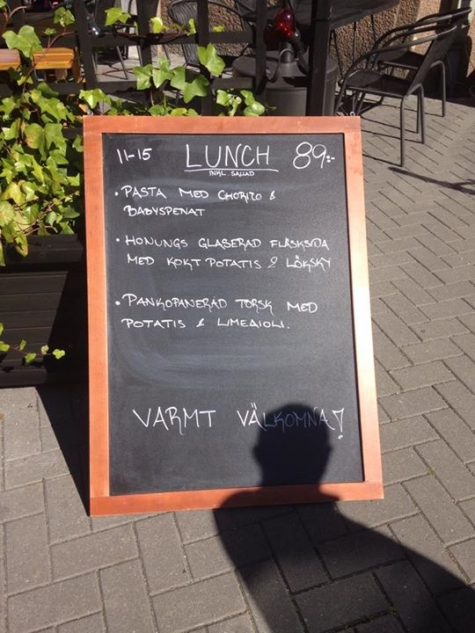 11-15 LUNCH 89:-
INKL SALLAD
• PASTA MED CHORIZO &
BABYSPENAT
• HONUNGS GLASERAD FLÄSKSIDA
MED KOKT POTATIS & LÖKSKY
• PANKOPANERAD TORSK MED
POTATIS & LIMEAIOLI.
VARMT VÄLKOMNA!